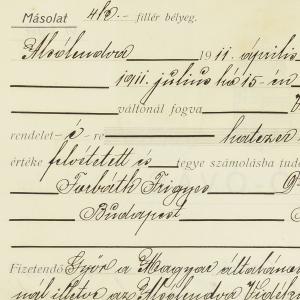 Másolat 4/2.- fillér bélyeg.
Alsólendva 1911. április
1911. julius hó 15-én
váltónál fogva
rendelet-é-re hatezer
értéke felvétetett és tegye számolásba tud
Torbáth Frigyes
Budapest
Fizetendő Győr a Magyar általános
nál illetve az Alsólendva Vidék